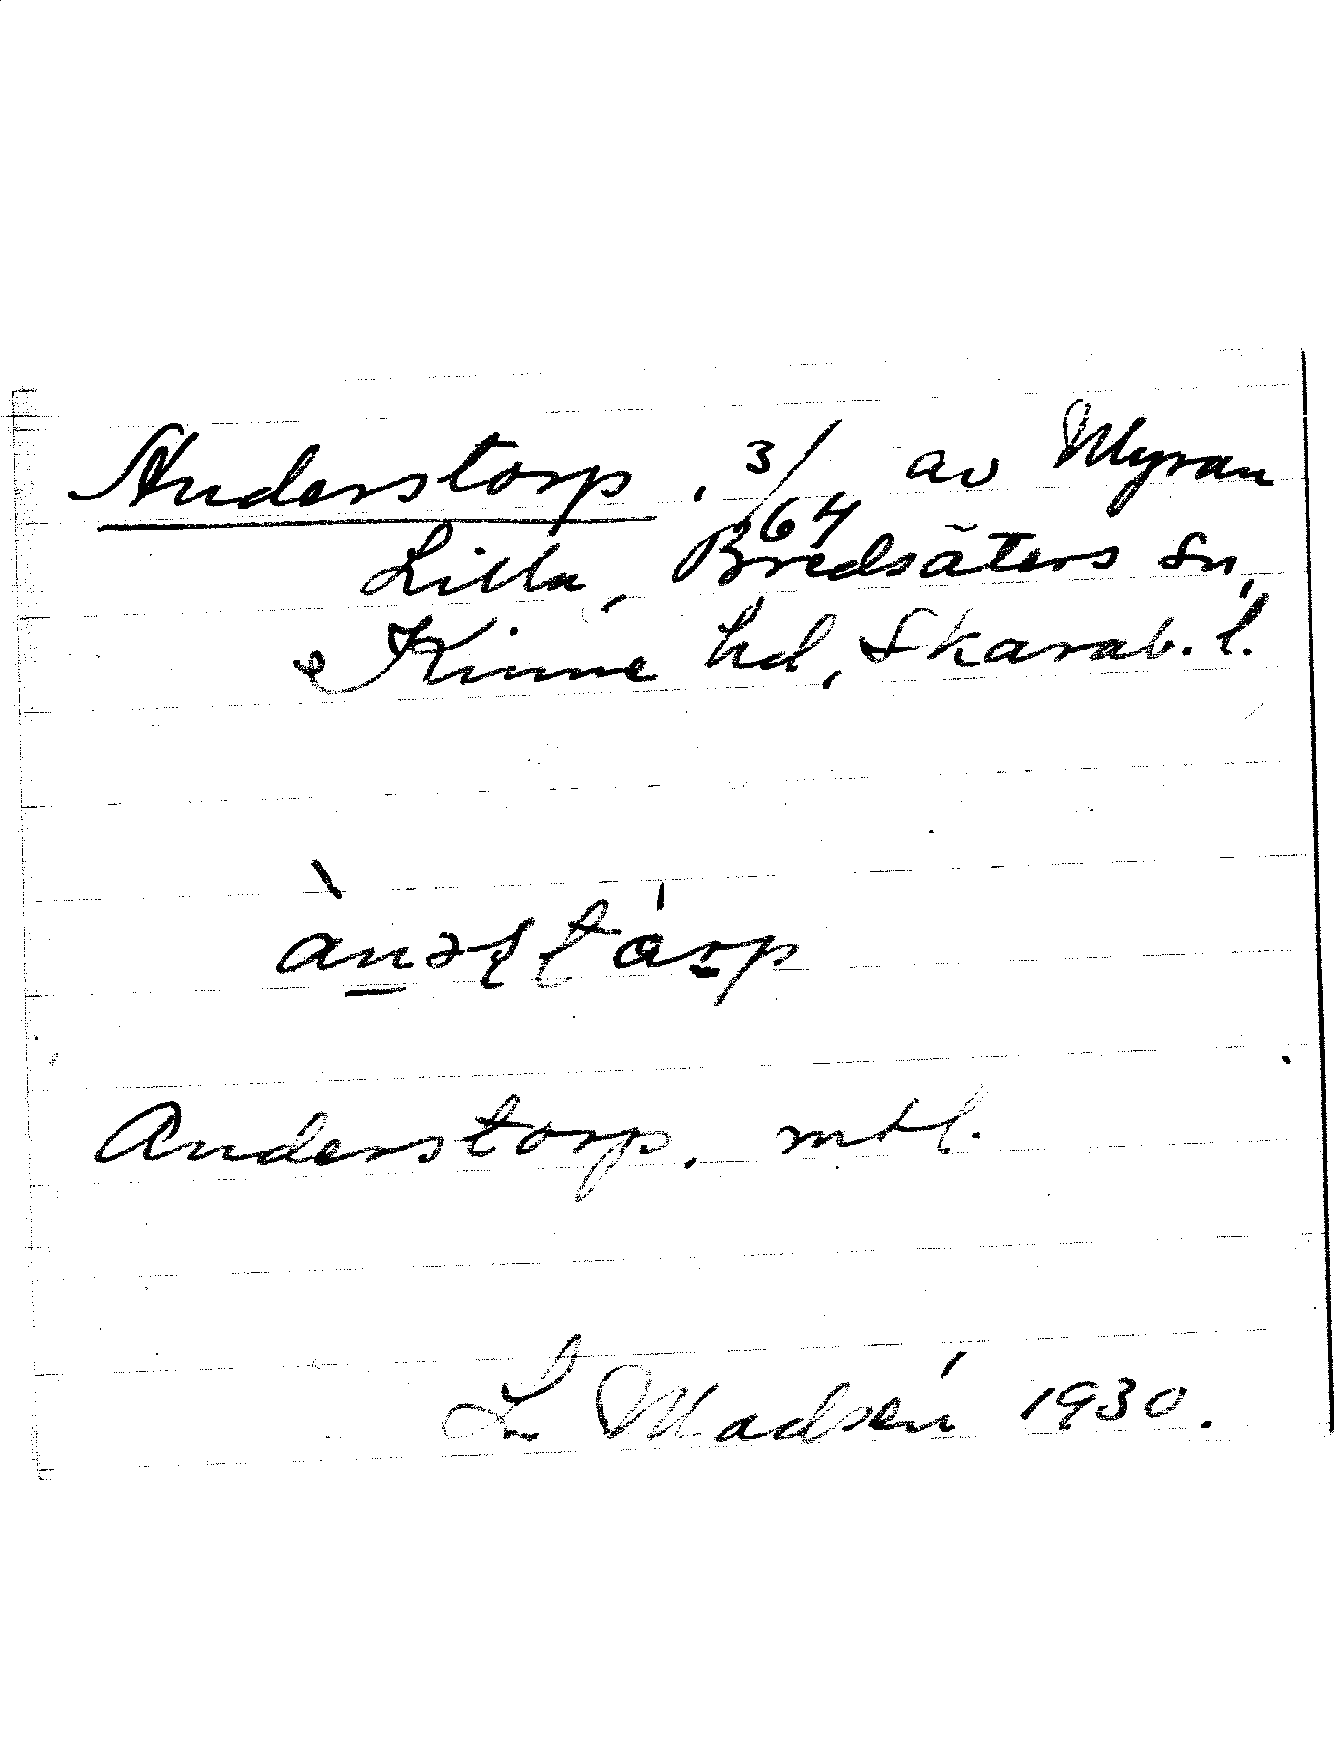 Anderstorp, 3/64 av Myran
Lilla, Bredsäters sn,
Kinne hd, Skarab. l.
Anderstorp, mtl.
L Madsén 1930.